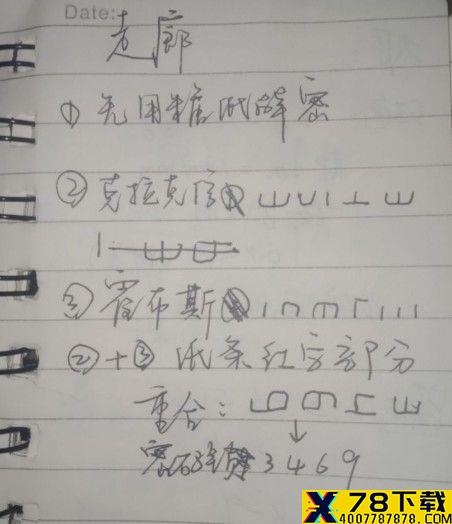 Date:
走廊
① 先用糖纸解密
② 克拉克
③ 霍布斯
②+③ 纸条红字部分
重合:
密码 3469
78下载
4007787878.COM